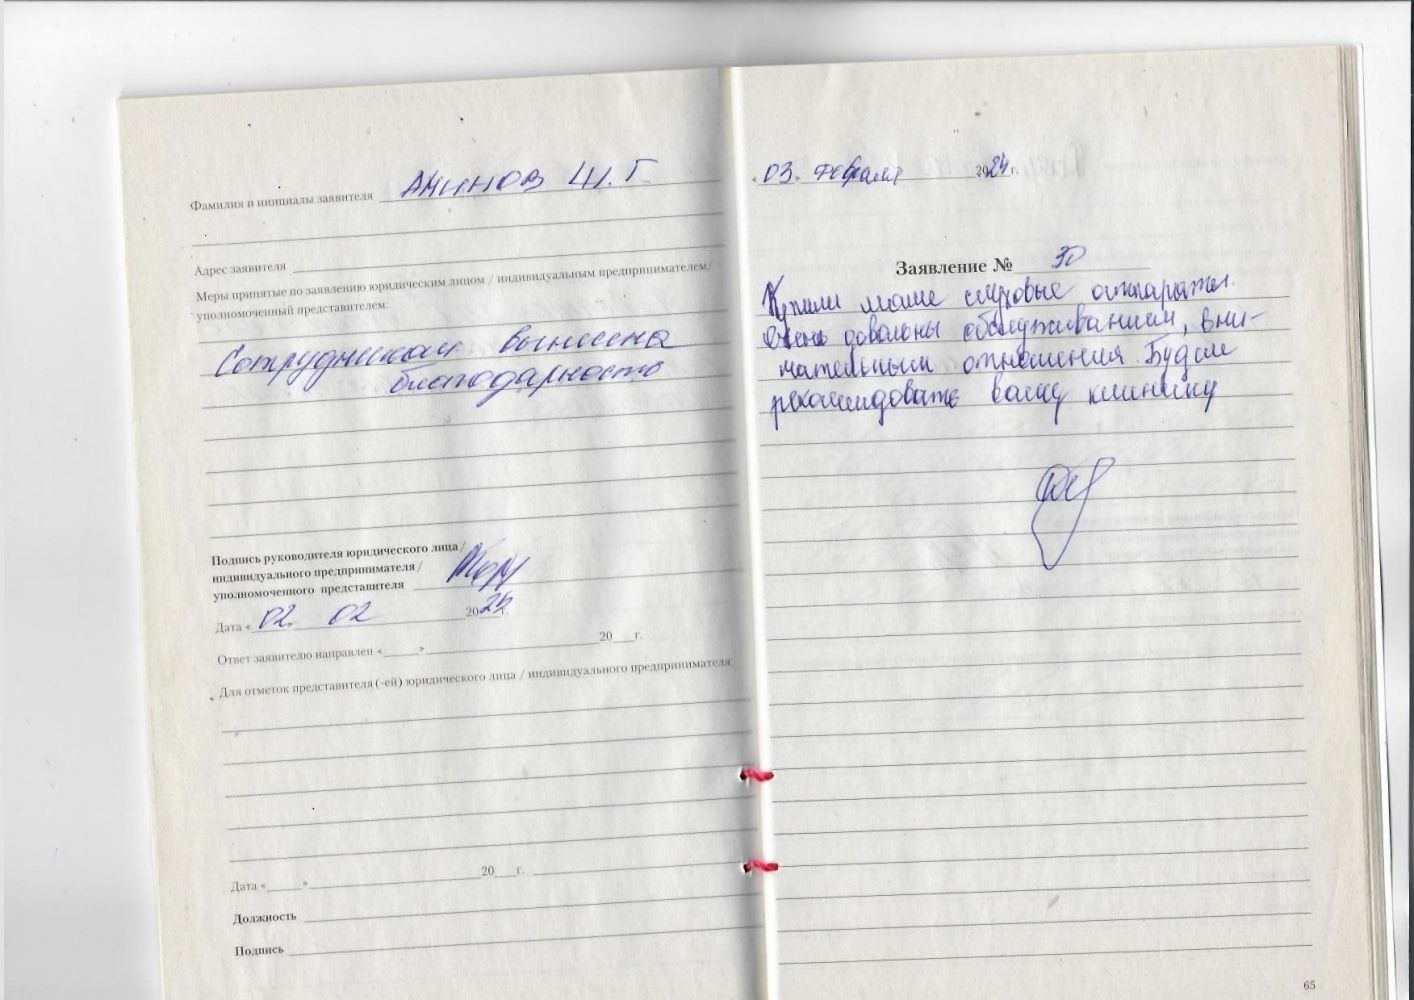 Фамилия и инициалы заявителя АМИНОВ Ш.Г.
Адрес заявителя
Меры принятые по заявлению юридическим лицом / индивидуальным предпринимателем/
уполномоченный представителем:
Сотрудникам вынесена
благодарность
Подпись руководителя юридического лица/
индивидуального предпринимателя/
уполномоченного представителя
Дата « 02. 02 20 г.
Ответ заявителю направлен « » 20 г.
Для отметок представителя (-ей) юридического лица / индивидуального предпринимателя
Дата « » 20 г.
Должность
Подпись
03. февраля 2024 г.
Заявление № 30
Купили маме слуховые аппараты.
Очень довольны обслуживанием, вни-
мательным отношения. Будем
рекомендовать вашу клинику
65